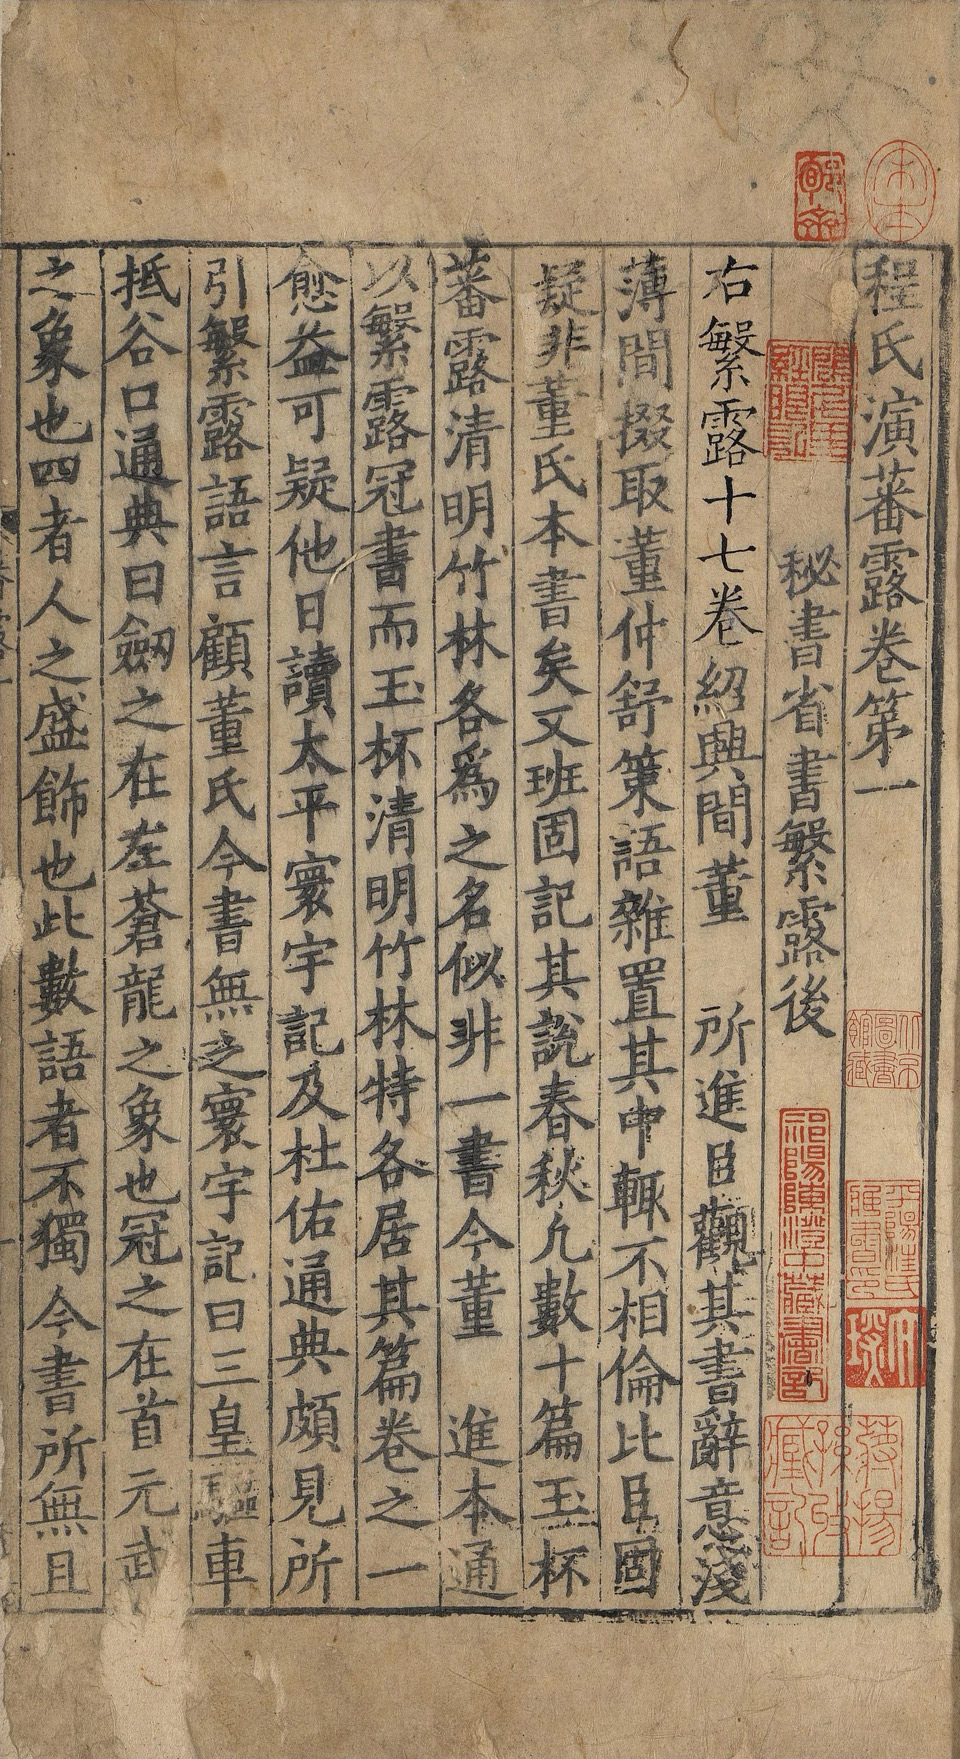 程氏演蕃露卷第一
秘書省書繁露後
右繁露十七卷紹興間董　所進臣觀其書辭意淺
薄間掇取董仲舒策語雜置其中輒不相倫比臣固
疑非董氏本書矣又班固記其說春秋凢數十篇玉杯
蕃露清明竹林各爲之名似非一書今董　進本通
以繁露冠書而玉杯清明竹林特各居其篇卷之一
愈益可疑他日讀太平寰宇記及杜佑通典頗見所
引繁露語言顧董氏今書無之寰宇記曰三皇驅車
抵谷口通典曰劒之在左蒼龍之象也冠之在首元武
之象也四者人之盛飾也此數語者不獨今書所無且
祁陽陳澄中藏書記
北京圖書館藏
平陽汪氏